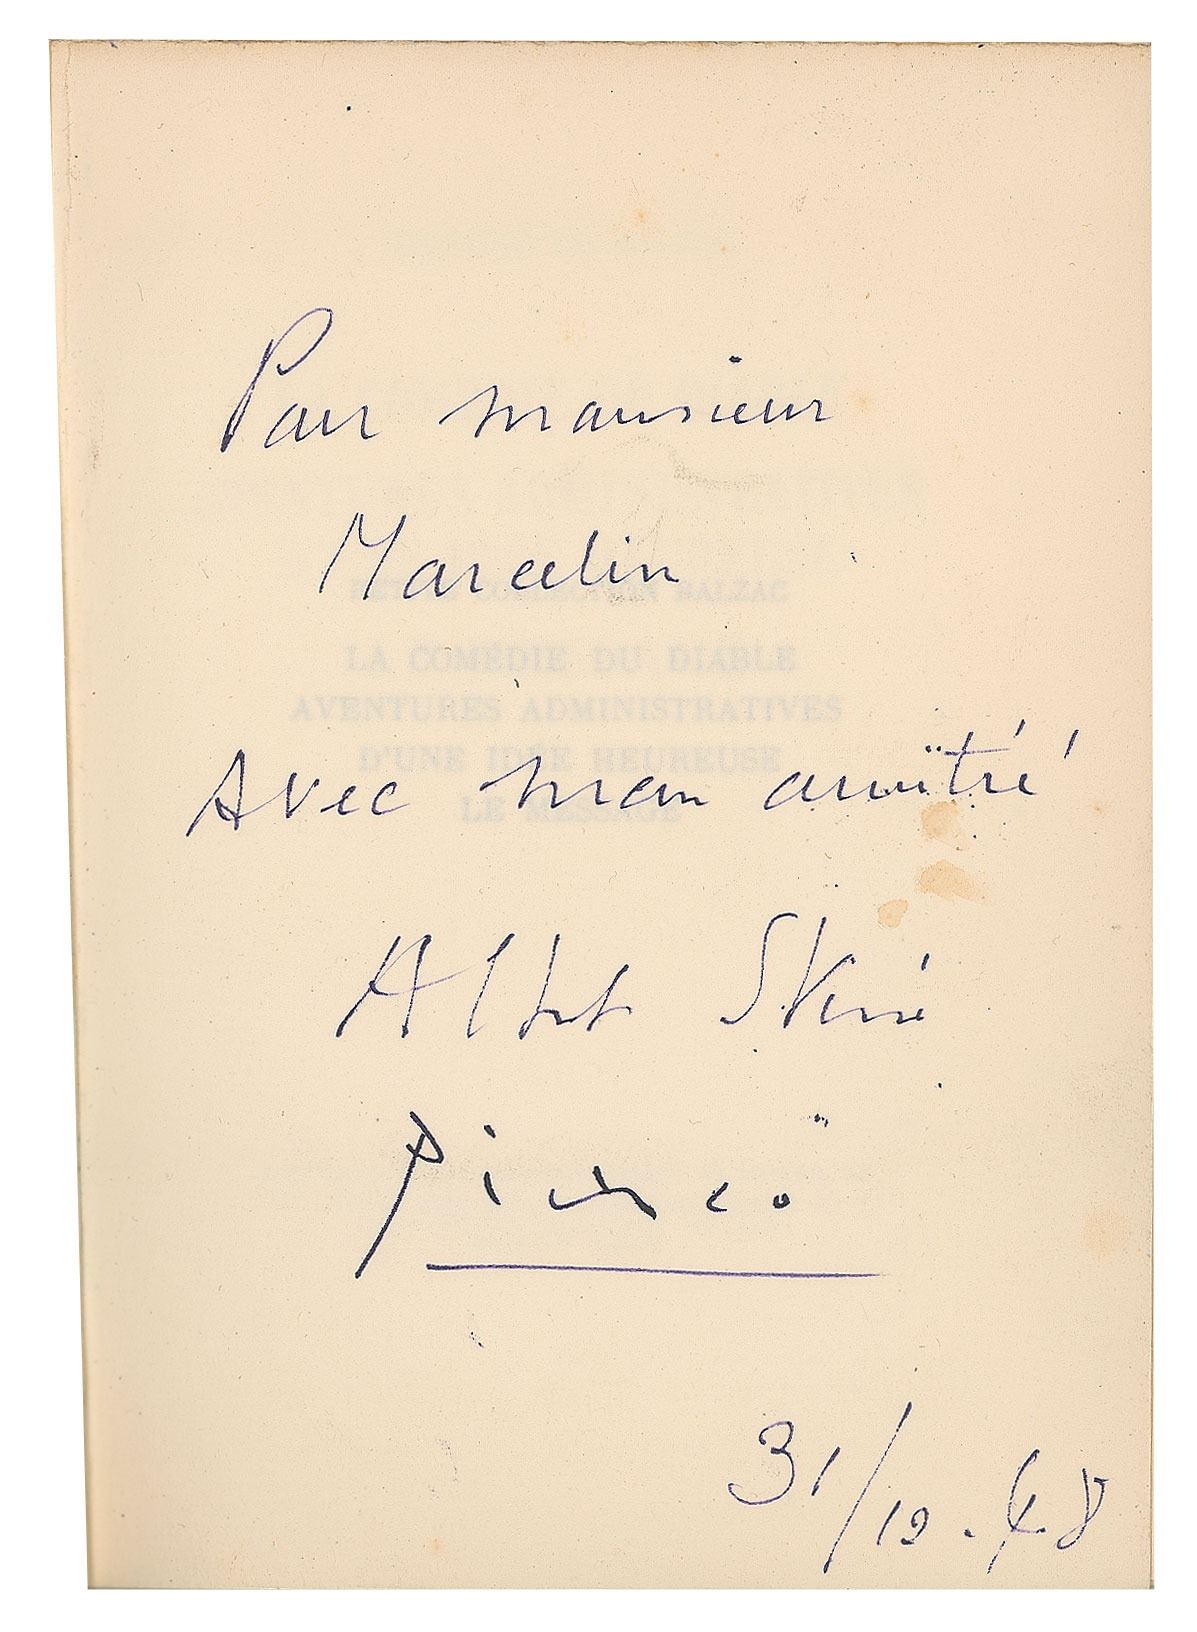 Pour monsieur
Marcelin
PETITE COLLECTION BALZAC
LA COMÉDIE DU DIABLE
AVENTURES ADMINISTRATIVES
D'UNE IDÉE HEUREUSE
Avec mon amitié
LE MESSAGE
Albert
31/12.48